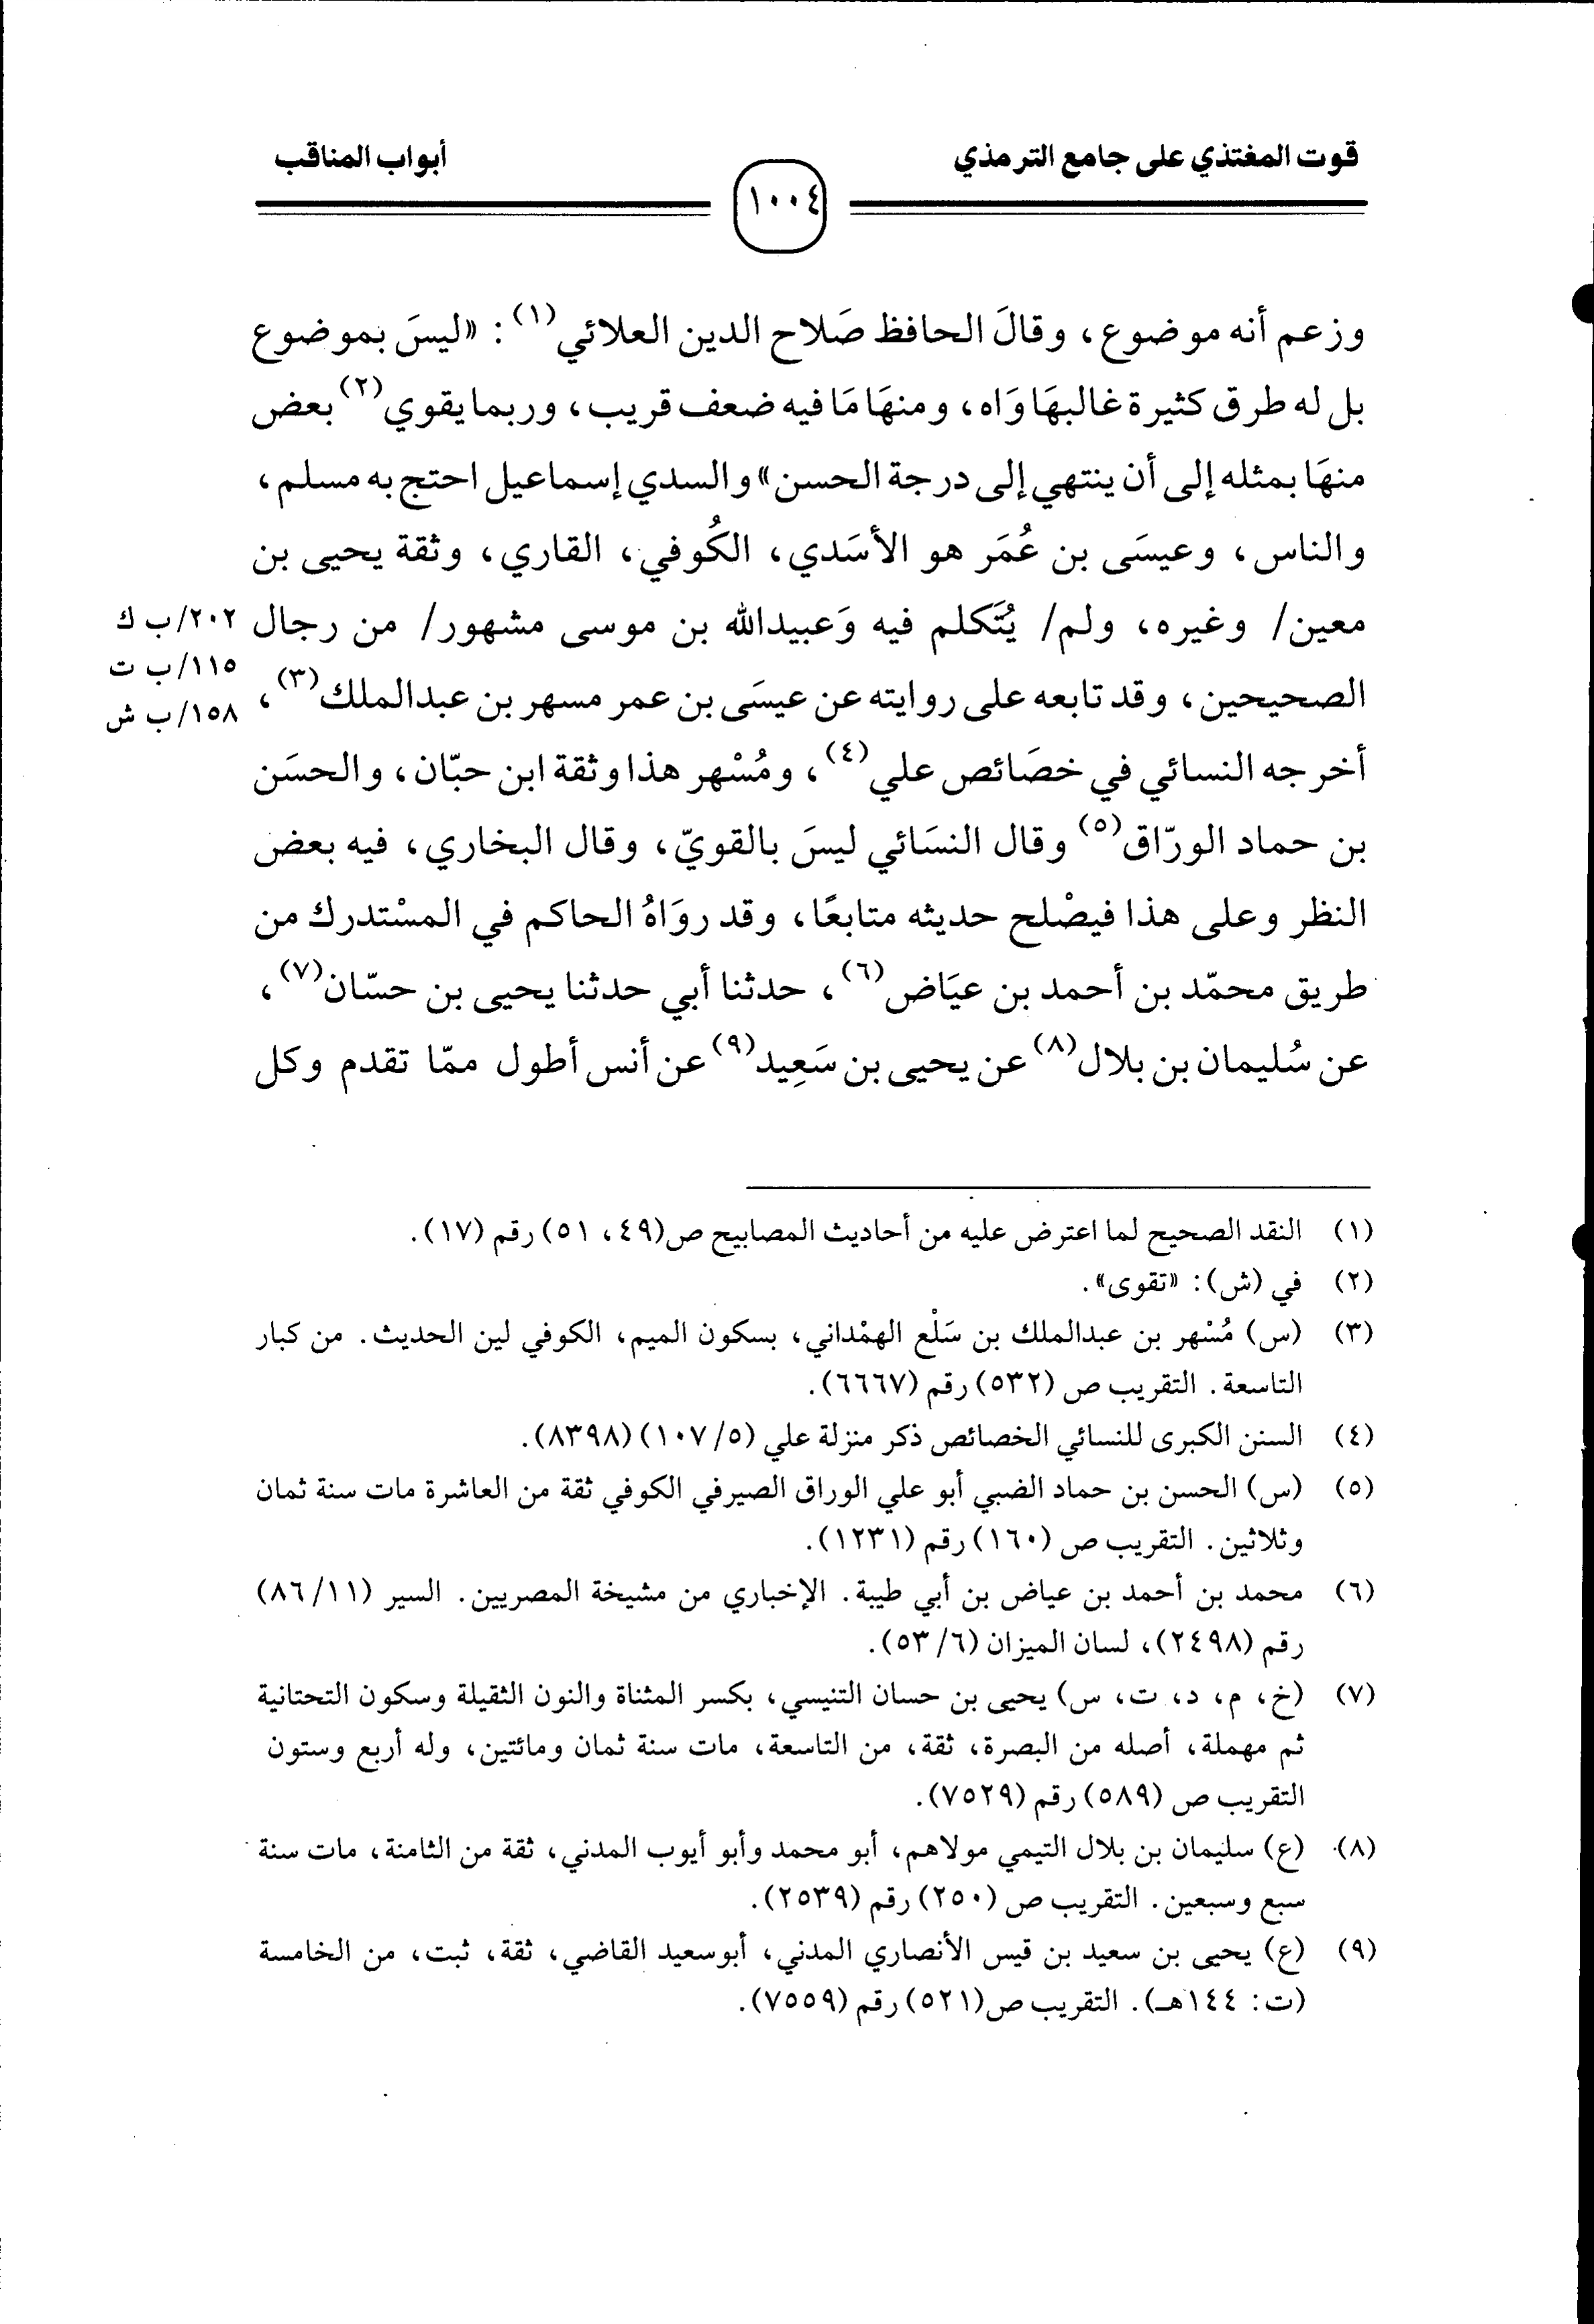 قوت المغتذي على جامع الترمذي
١٠٠٤
أبواب المناقب
وزعم أنه موضوع، وقالَ الحافظ صَلاح الدين العلائي(١): «ليسَ بموضوع
بل له طرق كثيرة غالبهَا وَاه، ومنهَا مَا فيه ضعف قريب، وربما يقوي(٢) بعض
منهَا بمثله إلى أن ينتهي إلى درجة الحسن» والسدي إسماعيل احتج به مسلم،
والناس، وعيسَى بن عُمَر هو الأسَدي، الكُوفي، القاري، وثقة يحيى بن
معين/ وغيره، ولم/ يُتَكلم فيه وَعبيدالله بن موسى مشهور/ من رجال
٢٠٢/ب ك
١١٥/ب ت
الصحيحين، وقد تابعه على روايته عن عيسَى بن عمر مسهر بن عبدالملك(٣)،
١٥٨/ب ش
أخرجه النسائي في خصَائص علي(٤)، ومُسْهر هذا وثقة ابن حبّان، والحسَن
بن حماد الورّاق(٥) وقال النسَائي ليسَ بالقويّ، وقال البخاري، فيه بعض
النظر وعلى هذا فيصْلح حديثه متابعًا، وقد روَاهُ الحاكم في المسْتدرك من
طريق محمّد بن أحمد بن عيَاض(٦)، حدثنا أبي حدثنا يحيى بن حسّان(٧)،
عن سُليمان بن بلال(٨) عن يحيى بن سَعِيد(٩) عن أنس أطول ممّا تقدم وكل
(١) النقد الصحيح لما اعترض عليه من أحاديث المصابيح ص(٤٩، ٥١) رقم (١٧).
(٢) في (ش): «تقوى».
(٣) (س) مُسْهر بن عبدالملك بن سَلْع الهمْداني، بسكون الميم، الكوفي لين الحديث. من كبار
التاسعة. التقريب ص (٥٣٢) رقم (٦٦٦٧).
(٤) السنن الكبرى للنسائي الخصائص ذكر منزلة علي (١٠٧/٥) (٨٣٩٨).
(٥) (س) الحسن بن حماد الضبي أبو علي الوراق الصيرفي الكوفي ثقة من العاشرة مات سنة ثمان
وثلاثين. التقريب ص (١٦٠) رقم (١٢٣١).
(٦) محمد بن أحمد بن عياض بن أبي طيبة. الإخباري من مشيخة المصريين. السير (٨٦/١١)
رقم (٢٤٩٨)، لسان الميزان (٥٣/٦).
(٧) (خ، م، د، ت، س) يحيى بن حسان التنيسي، بكسر المثناة والنون الثقيلة وسكون التحتانية
ثم مهملة، أصله من البصرة، ثقة، من التاسعة، مات سنة ثمان ومائتين، وله أربع وستون
التقريب ص (٥٨٩) رقم (٧٥٢٩).
(٨) (ع) سليمان بن بلال التيمي مولاهم، أبو محمد وأبو أيوب المدني، ثقة من الثامنة، مات سنة
سبع وسبعين. التقريب ص (٢٥٠) رقم (٢٥٣٩).
(٩) (ع) يحيى بن سعيد بن قيس الأنصاري المدني، أبوسعيد القاضي، ثقة، ثبت، من الخامسة
(ت: ١٤٤هـ). التقريب ص(٥٢١) رقم (٧٥٥٩).